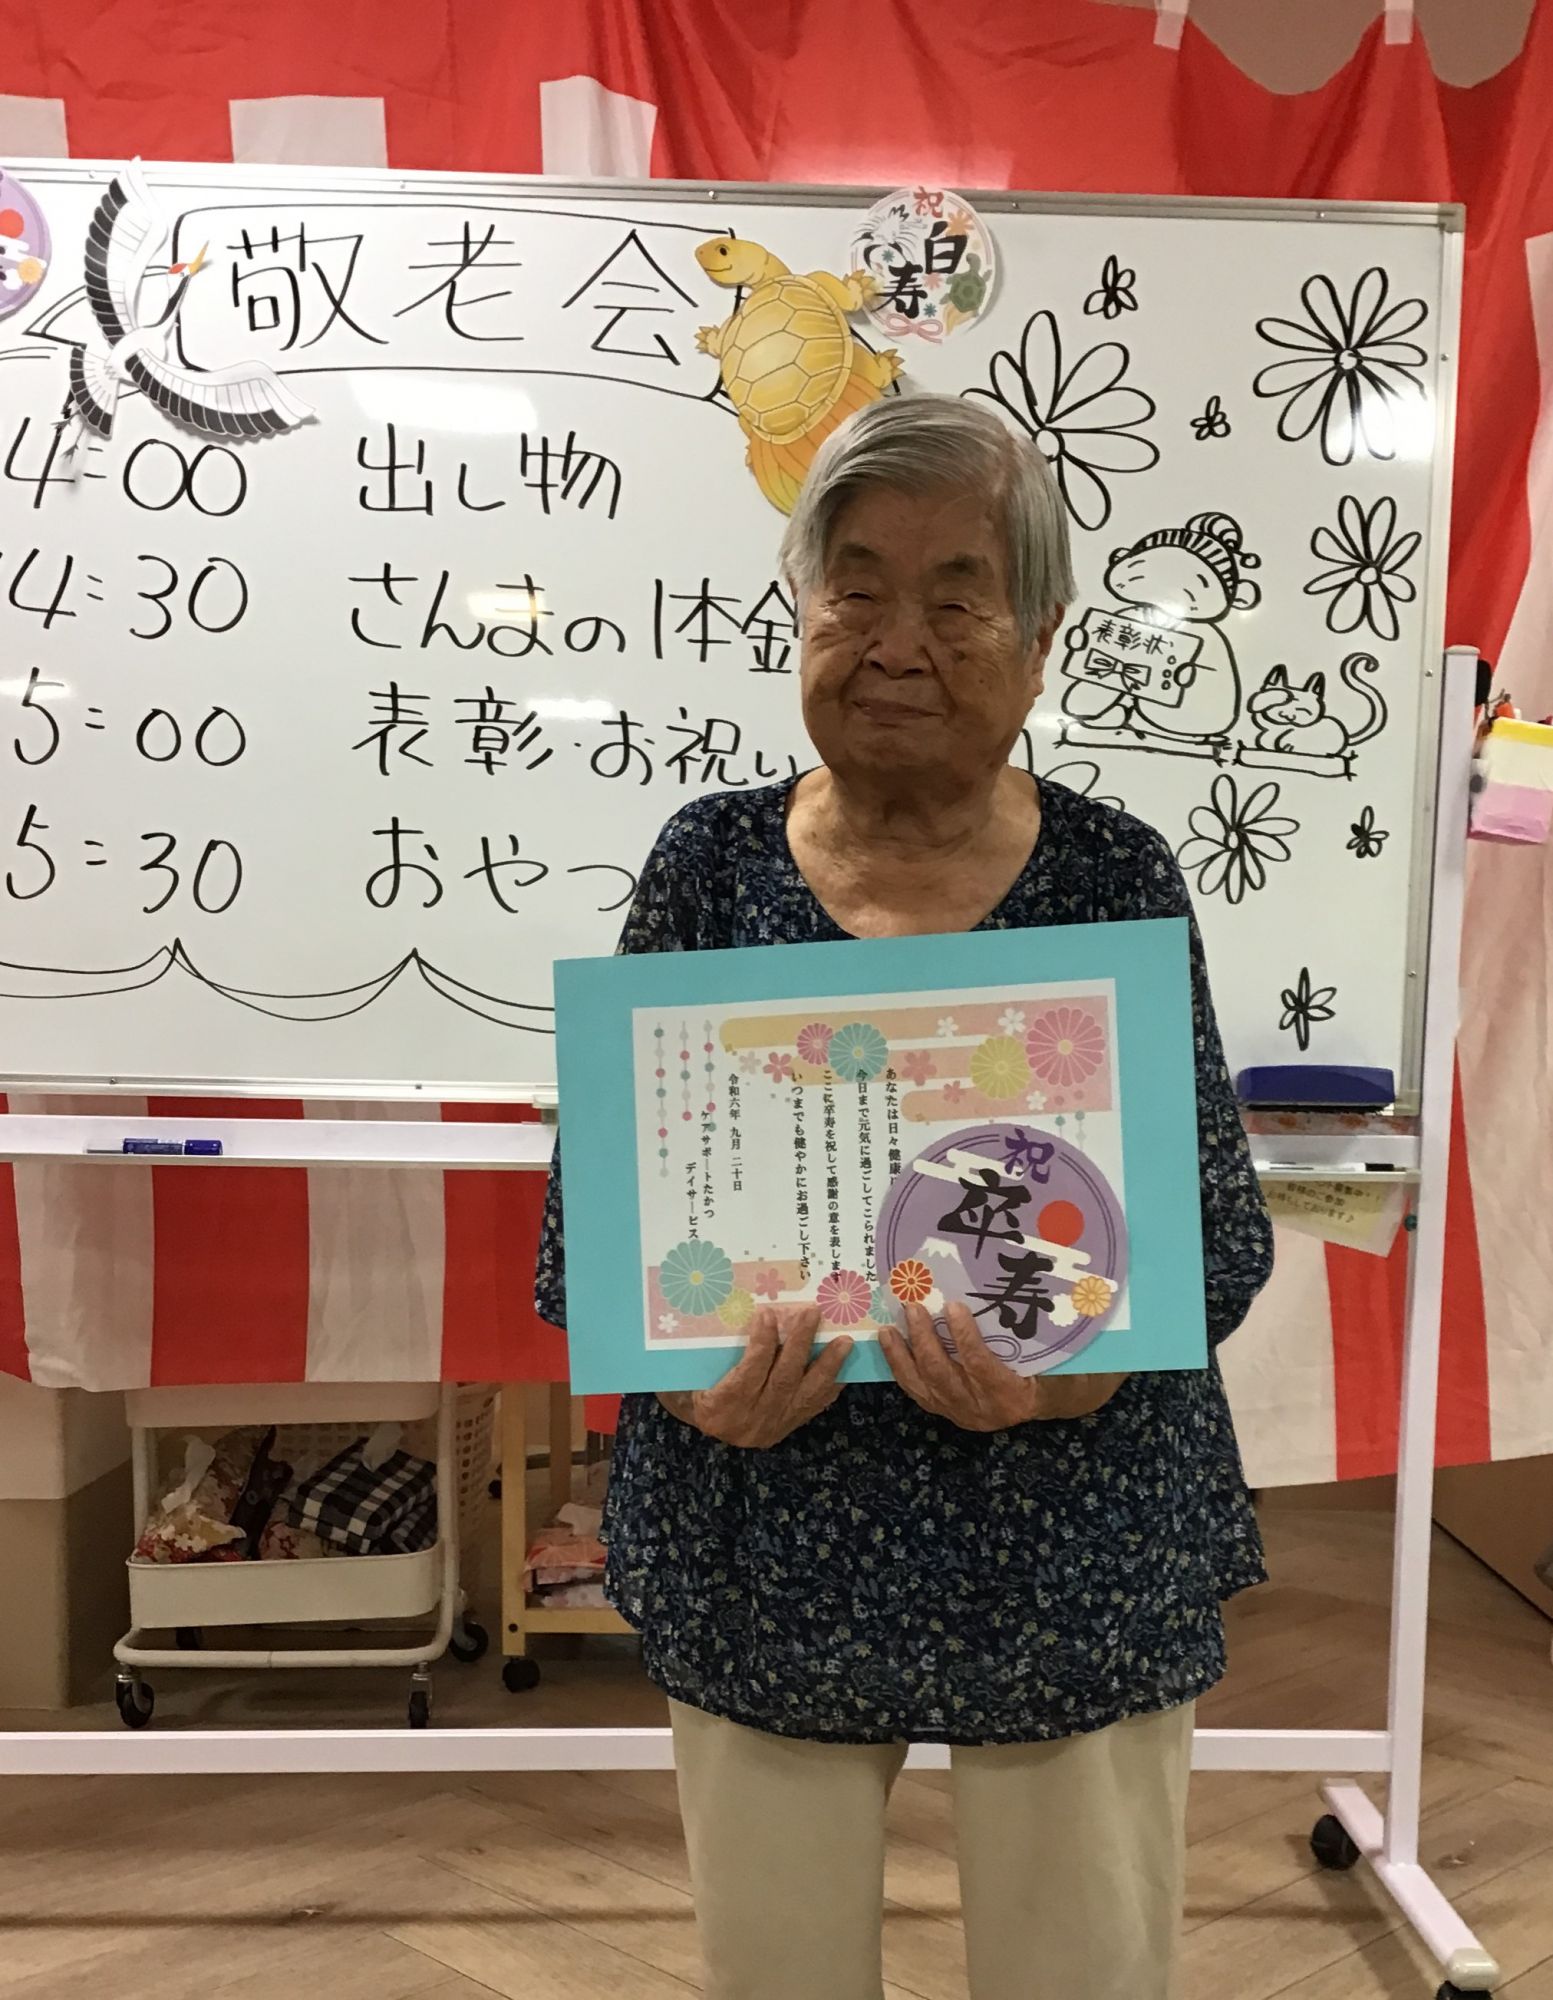 敬老会
祝
白寿
4:00 出し物
14:30 さんまの体
5:00 表彰・お祝い
5:30 おやつ
表彰状
あなたは日々健康
今日まで元気に過ごしてこられました
ここに卒寿を祝して感謝の意を表します
いつまでも健やかにお過ごし下さい
令和六年 九月 二十日
ケアサポートたかつ
デイサービス
祝
卒寿
皆様のご参加
お待ちしております♪